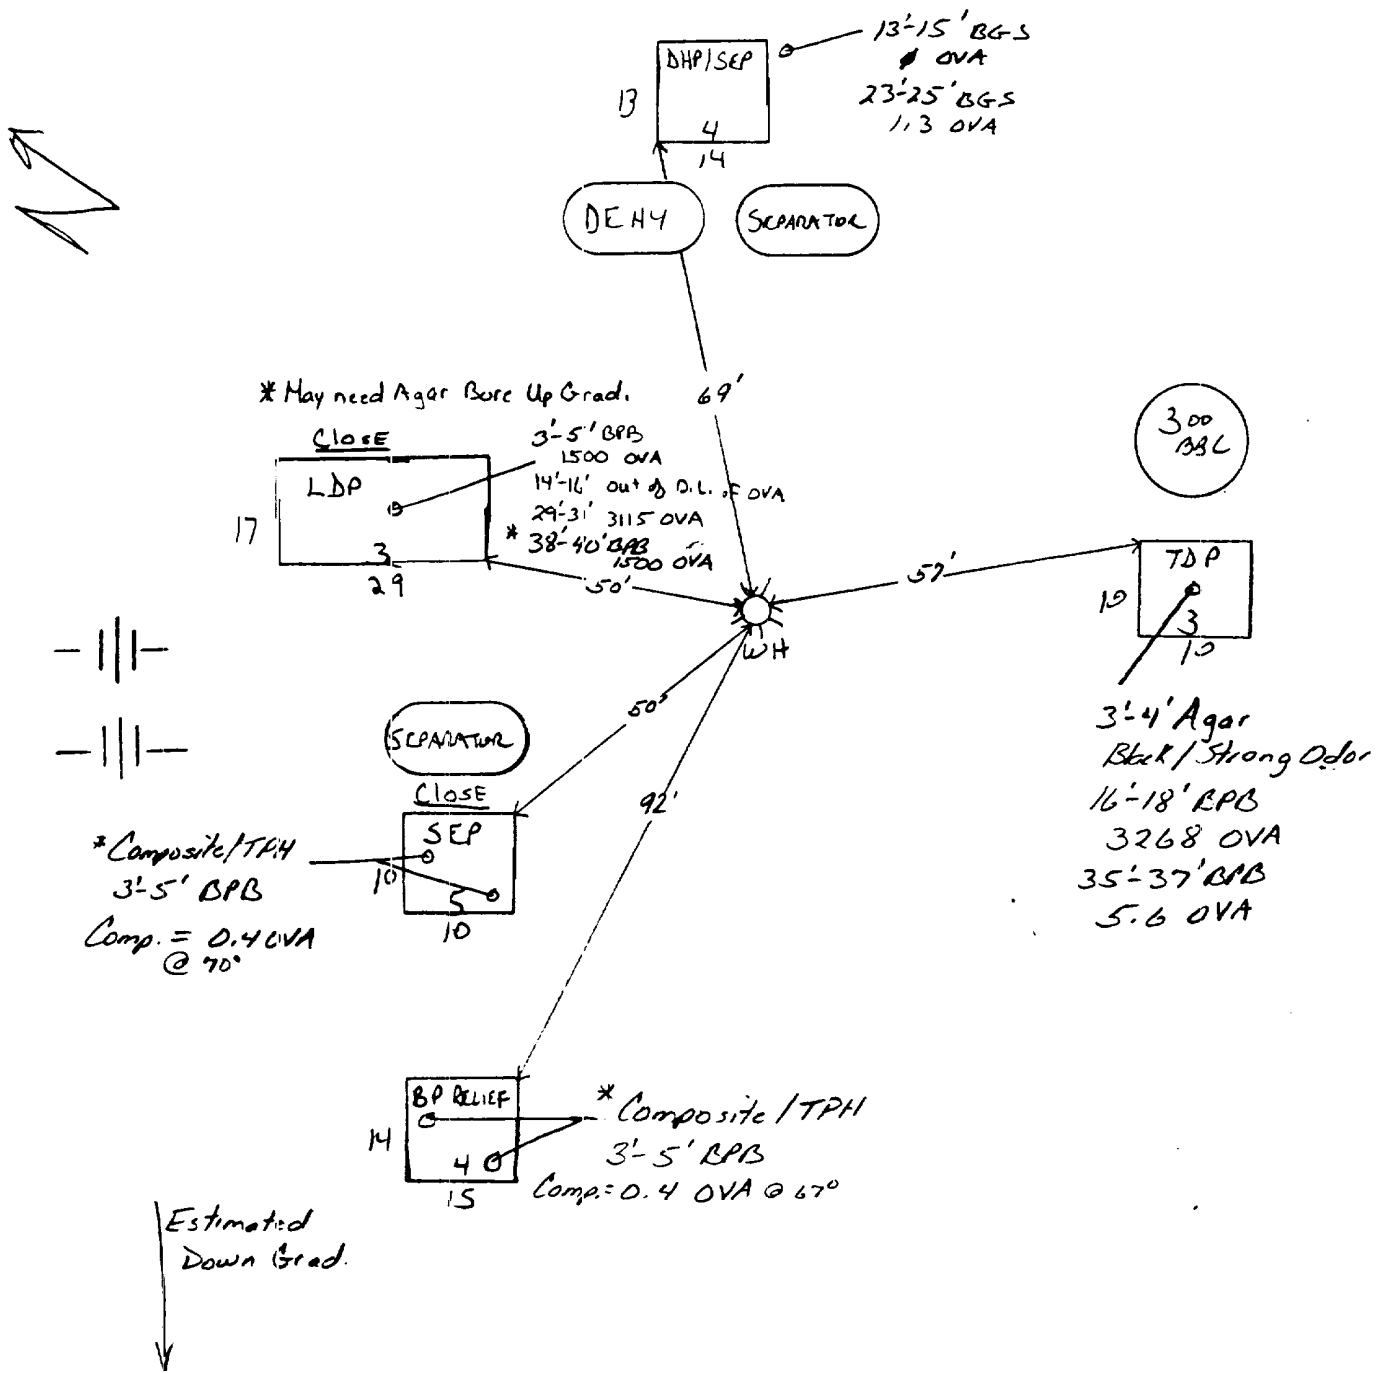 13'-15' BGS
ø OVA
23'-25' BGS
1.3 OVA
DHP/SEP
13
4
14
DEHY
SEPARATOR
69'
* May need Agar Bore Up Grad.
Close
3'-5' BPB
1500 OVA
14'-16' out of D.L. of OVA
29'-31' 3115 OVA
* 38'-40' BPB
1500 OVA
LDP
17
3
29
50'
300
BBL
57'
TDP
10
3
10
WH
3'-4' Agar
Black/Strong Odor
16'-18' BPB
3268 OVA
35'-37' BPB
5.6 OVA
50'
92'
SEPARATOR
Close
SEP
10
5
10
*Composite/TPH
3'-5' BPB
Comp. = 0.4 OVA
@ 70°
BP RELIEF
14
4
15
* Composite/TPH
3'-5' BPB
Comp.= 0.4 OVA @ 67°
Estimated
Down Grad.